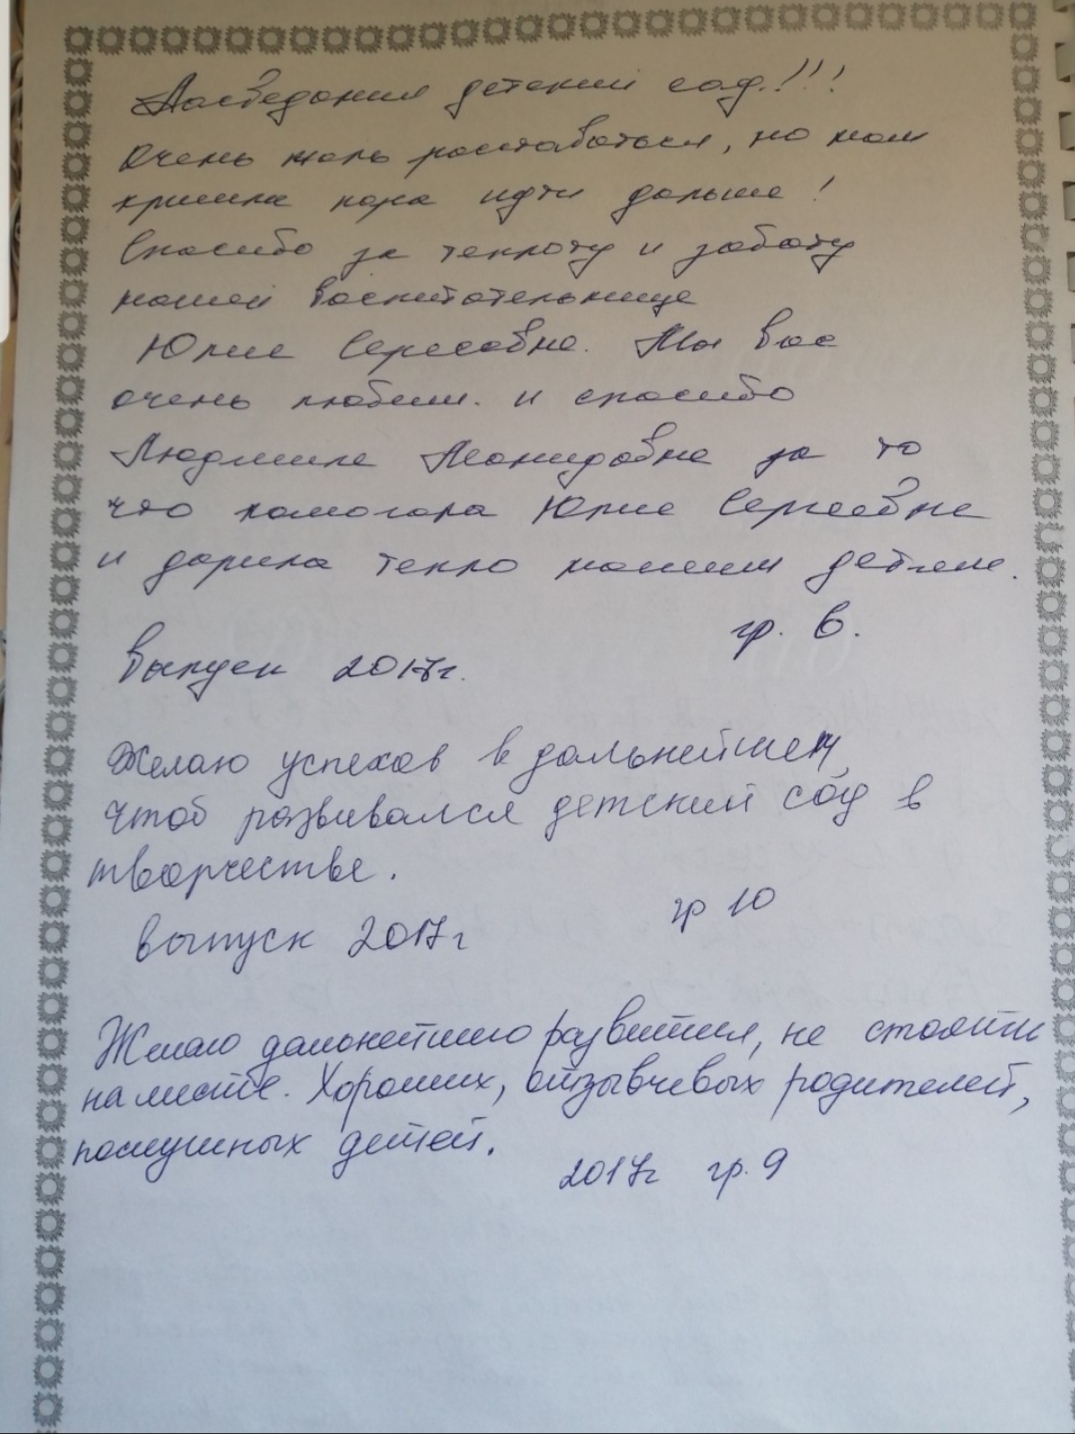 Досведания детский сад!!!
Очень жаль расставаться, но нам
пора идти дальше!
Спасибо за теплоту и заботу
нашей воспитательнице
Юлие Сергеевне. Мы вас
очень любим. и спасибо
Людмиле Леонидовне за то
что помогала Юлие Сергеевне
и дарила тепло нашим детям.
гр. 6.
Выпуск 2017г.
Желаю успехов в дальнейшем,
чтоб развивался детский сад в
творчестве.
гр 10
выпуск 2017г
Желаю дальнейшего развития, не стоять
на месте. Хороших, отзывчевых родителей,
послушных детей.
2017г гр. 9